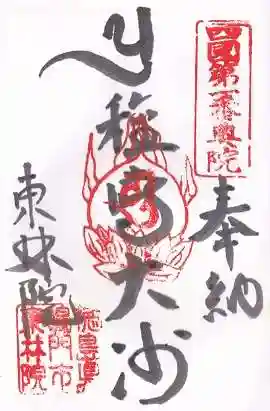 四国第一番奥院
奉納
種蒔大師
東林院
徳島県
鳴門市
東林院